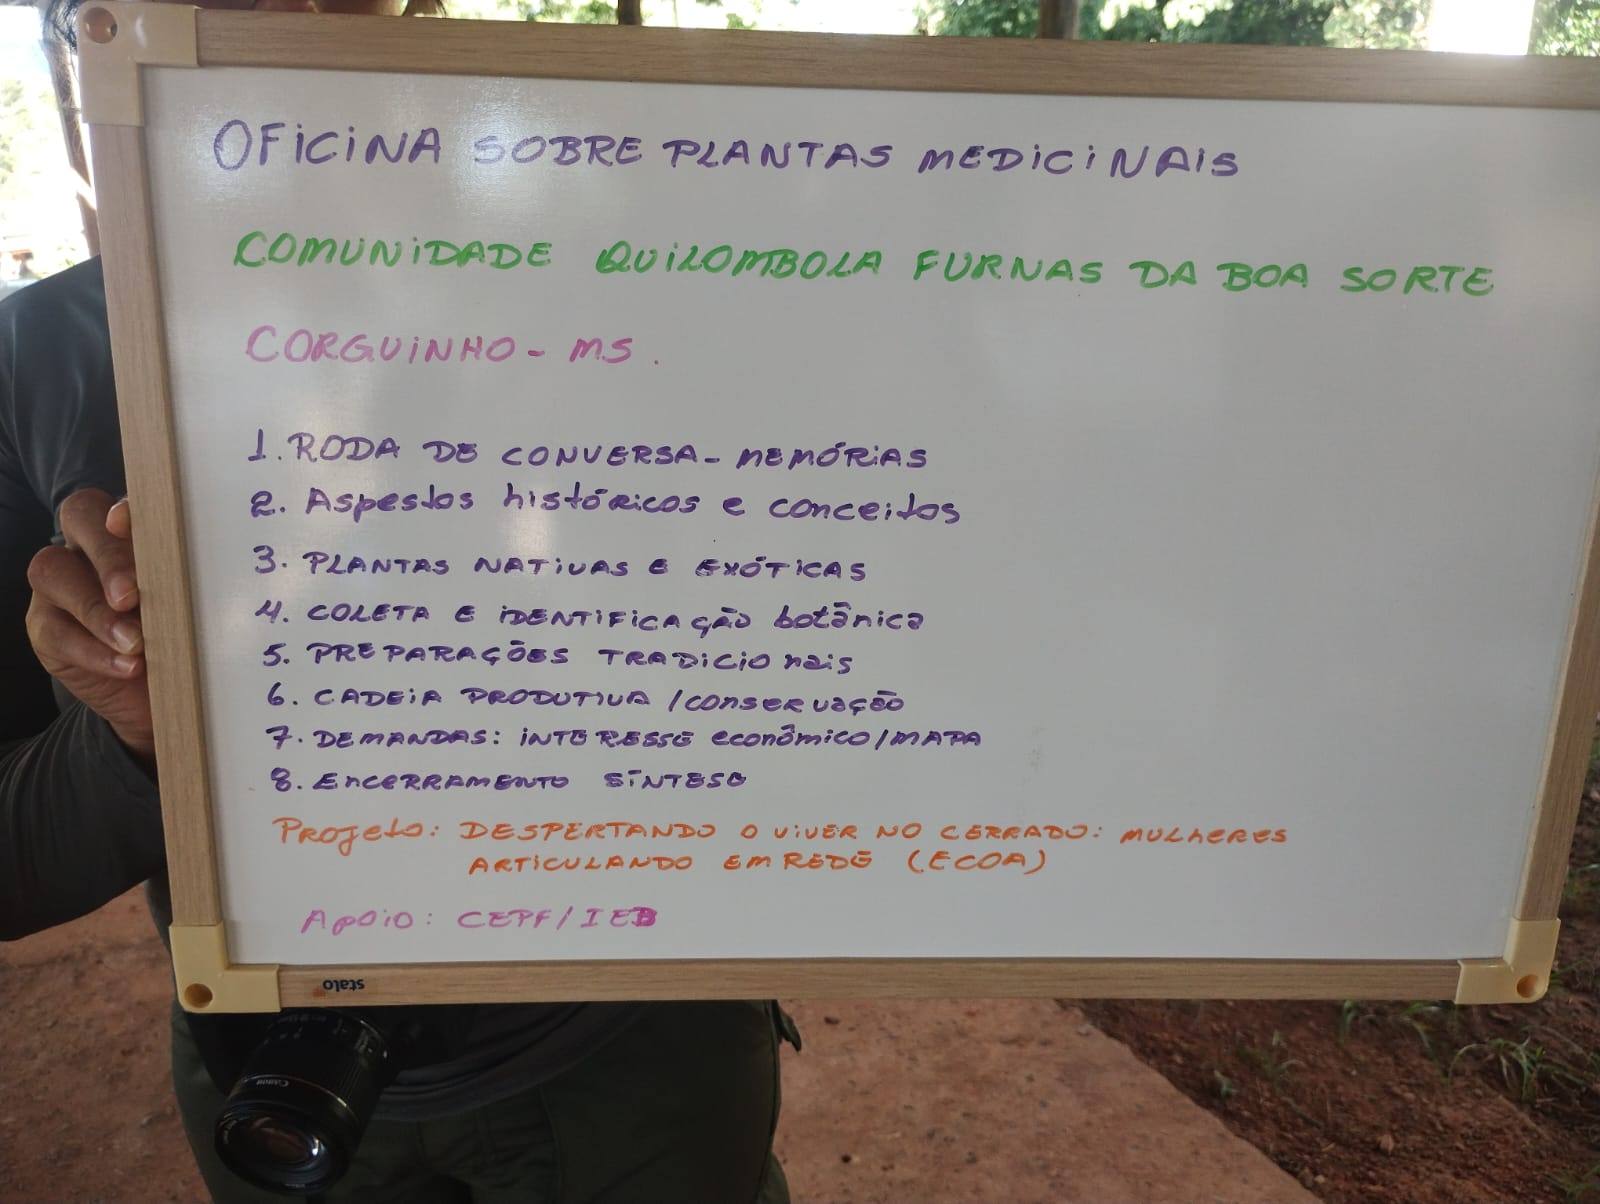 OFICINA SOBRE PLANTAS MEDICINAIS
COMUNIDADE QUILOMBOLA FURNAS DA BOA SORTE
CORGUINHO - MS.
1. RODA DE CONVERSA - MEMÓRIAS
2. Aspestos históricos e conceitos
3. PLANTAS NATIVAS E EXÓTICAS
4. COLETA E IDENTIFICAÇÃO botânica
5. PREPARAÇÕES TRADICIONais
6. CADEIA PRODUTIVA / conservação
7. DEMANDAS: INTERESSE econômico / MAPA
8. ENCERRAMENTO SÍNTESE
Projeto: DESPERTANDO O VIVER NO CERRADO: MULHERES
ARTICULANDO EM REDE (ECOA)
Apoio: CEPF / IEB
stalo
Canon